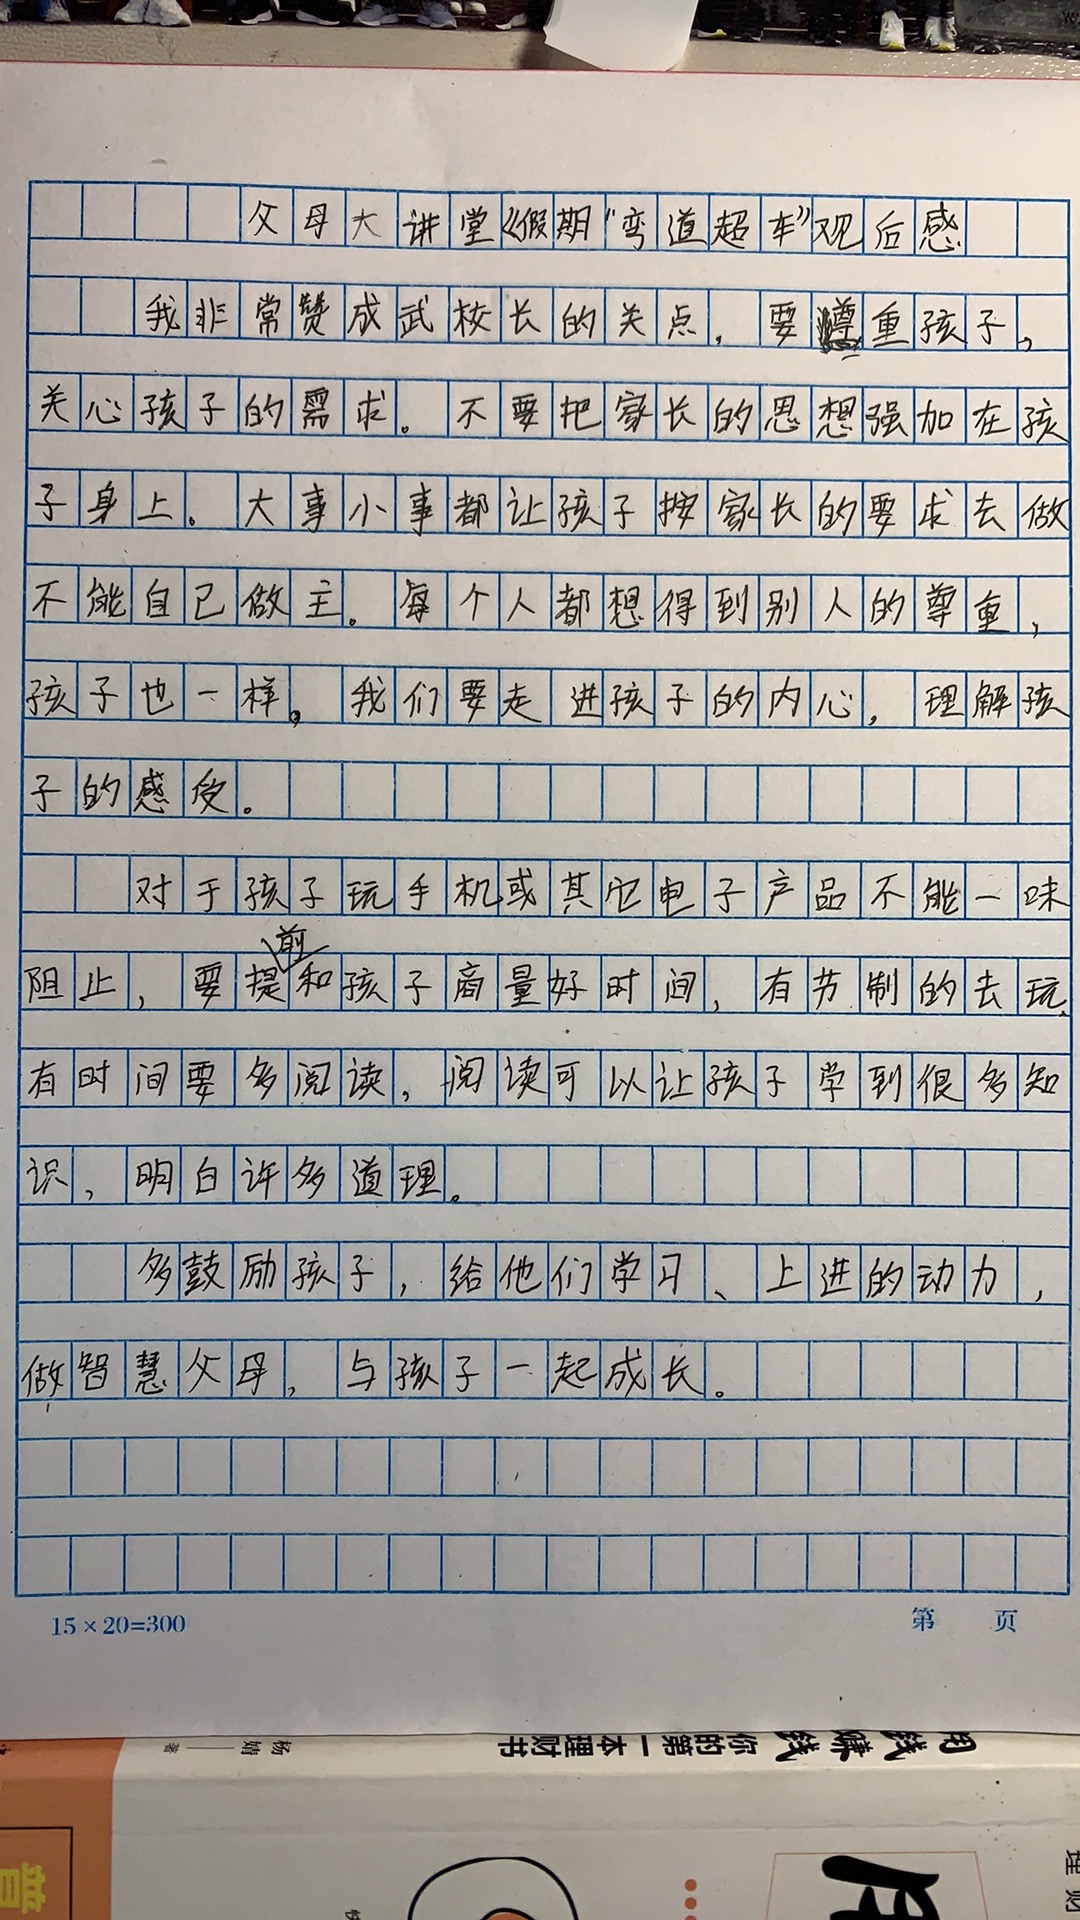 父母大讲堂《假期“弯道超车”观后感
我非常赞成武校长的关点，要尊重孩子，
关心孩子的需求。不要把家长的思想强加在孩
子身上。大事小事都让孩子按家长的要求去做
不能自己做主。每个人都想得到别人的尊重，
孩子也一样。我们要走进孩子的内心，理解孩
子的感受。
对于孩子玩手机或其它电子产品不能一味
阻止，要提前和孩子商量好时间，有节制的去玩.
有时间要多阅读，阅读可以让孩子学到很多知
识，明白许多道理。
多鼓励孩子，给他们学习、上进的动力，
做智慧父母，与孩子一起成长。
15×20=300
第 页
用钱赚钱 你的第一本理财书
杨婧 著
理财